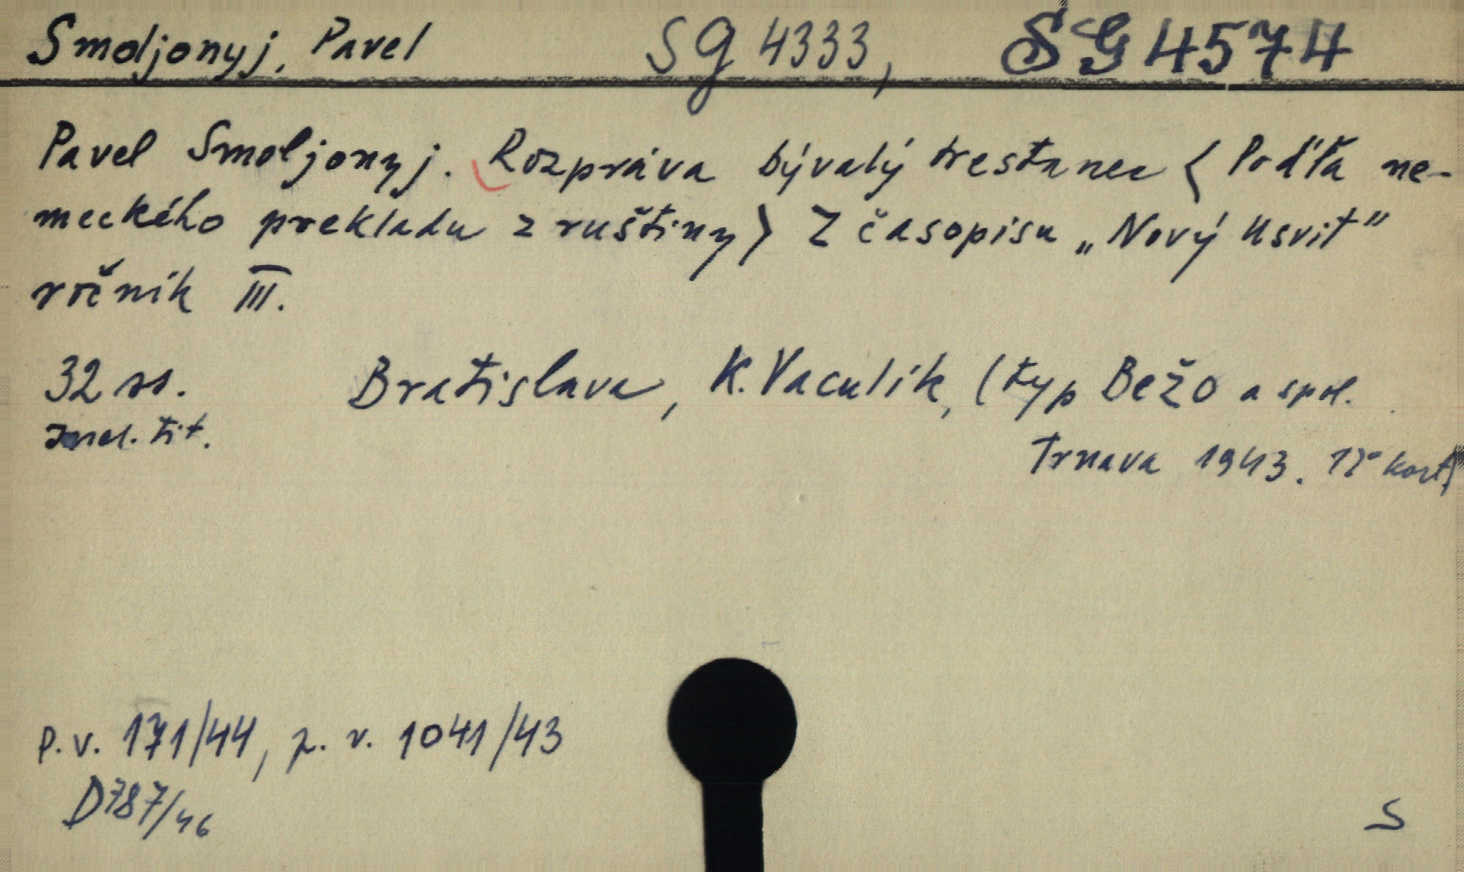 Smoljonyj, Pavel SG 4333, SG 4574
Pavel Smoljonyj. Rozpráva bývalý trestanec (Podľa ne-
meckého prekladu z ruštiny) Z časopisu „Nový úsvit"
ročník III.
32 ss. Bratislava, K. Vaculík, (typ Bežo a spol.
tit. Trnava 1943. 12° kart)
p.v. 171/44, p. v. 1041/43
D787/46
S